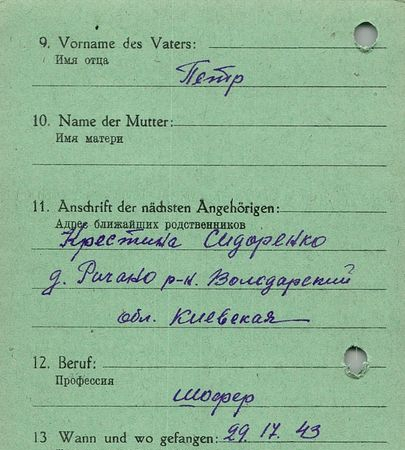 9. Vorname des Vaters:
Имя отца
Петр
10. Name der Mutter:
Имя матери
11. Anschrift der nächsten Angehörigen:
Адрес ближайших родственников
Крестина Сидоренко
д. Ричано р-н. Володарский
обл. Киевская
12. Beruf:
Профессия
шофер
13 Wann und wo gefangen: 29.17.43